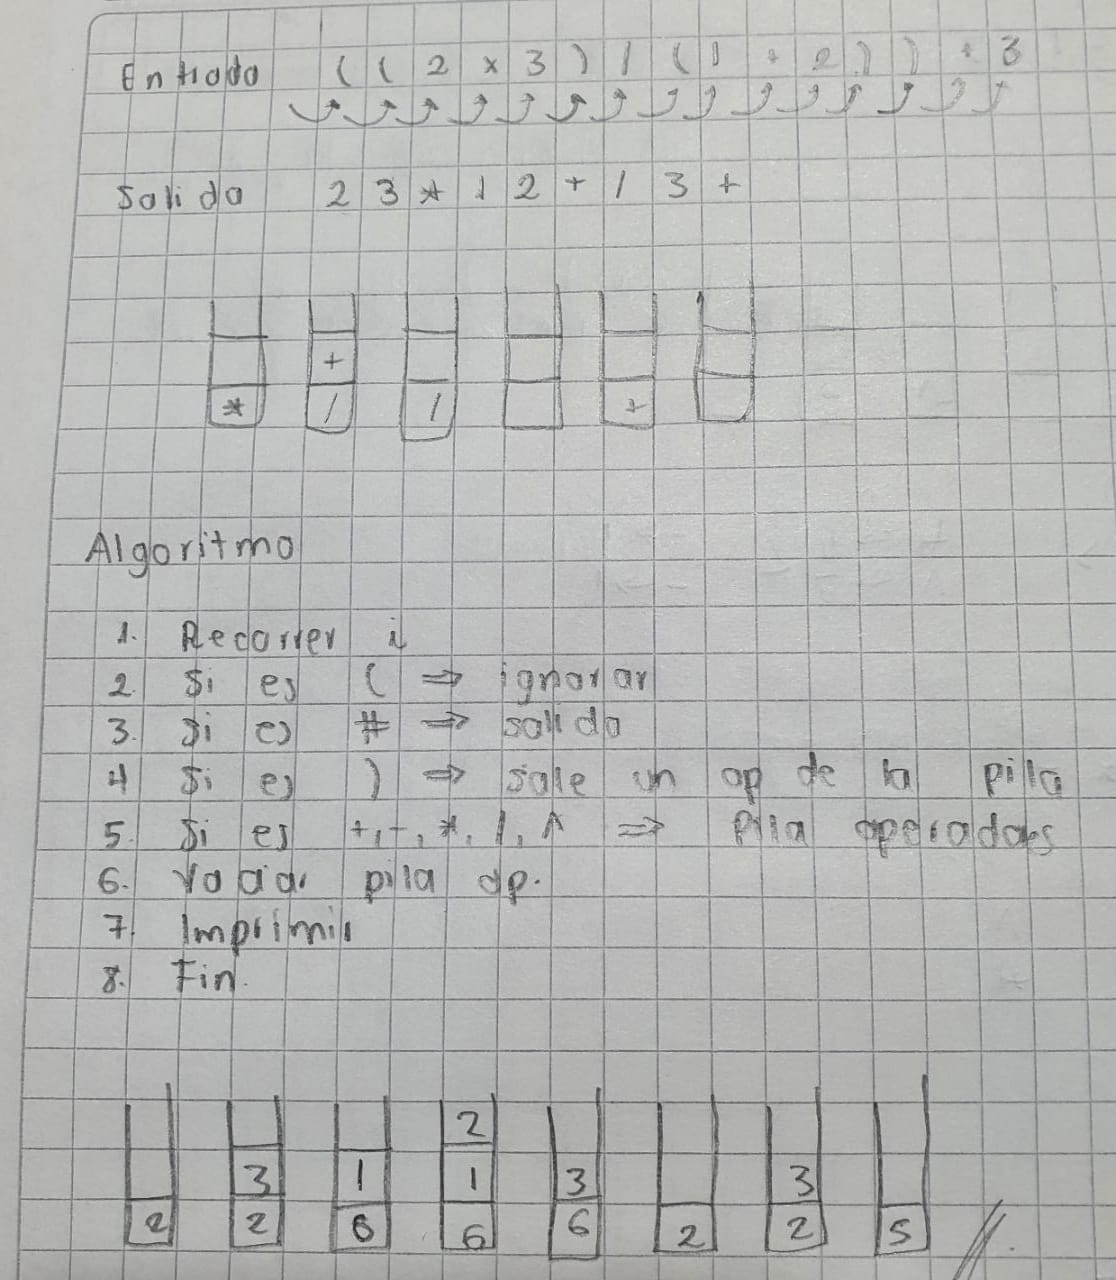 Entrada ( ( 2 x 3 ) / ( 1 + 2 ) ) + 3
Salida 2 3 * 1 2 + / 3 +
* + / / +
Algoritmo
1. Recorrer i
2. Si es ( ⇒ ignorar
3. Si es # ⇒ salida
4 Si es ) ⇒ sale un op de la pila
5. Si es +, -, *, /, ^ ⇒ Pila operadores
6. Vaciar pila op.
7. Imprimir
8. Fin.
2
3 1 1 3 3
2 2 6 6 6 2 2 5